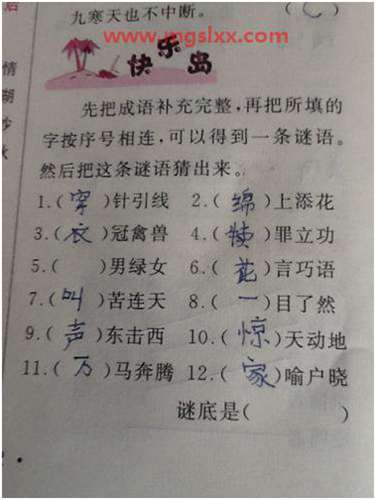 九寒天也不中断。 ( C )
www.mgslxx.com
快乐岛
先把成语补充完整,再把所填的
字按序号相连,可以得到一条谜语。
然后把这条谜语猜出来。
1.( 穿 )针引线 2.( 绵 )上添花
3.( 衣 )冠禽兽 4.( )罪立功
5.( )男绿女 6.( 花 )言巧语
7.( 叫 )苦连天 8.( 一 )目了然
9.( 声 )东击西 10.( 惊 )天动地
11.( 万 )马奔腾 12.( 家 )喻户晓
谜底是( )